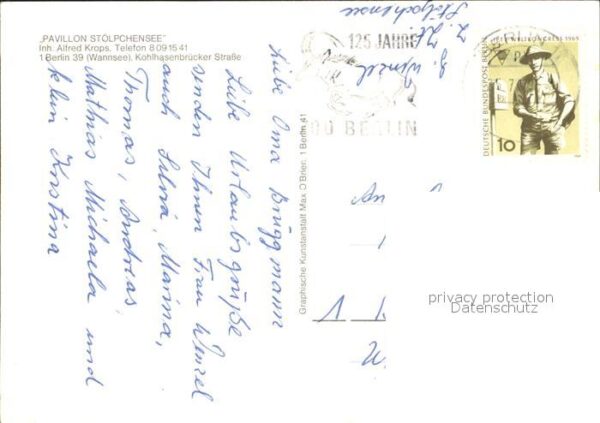 „PAVILLON STÖLPCHENSEE"
Inh. Alfred Krops, Telefon 8 09 15 41
1 Berlin 39 (Wannsee), Kohlhasenbrücker Straße
Liebe Oma Brüggmann
Liebe Urlaubsgrüße
senden Ihnen Frau Wenzel
auch Silvia, Marina,
Thomas, Andreas,
Mathias Michaela und
klein Kristina
Graphische Kunstanstalt Max O'Brien, 1 Berlin 41
G. Wenzel
z. Zt.
Stölpchensee
125 JAHRE
ZOO BERLIN
BERLIN
DEUTSCHE BUNDESPOST BERLIN
1969
10
privacy protection
Datenschutz